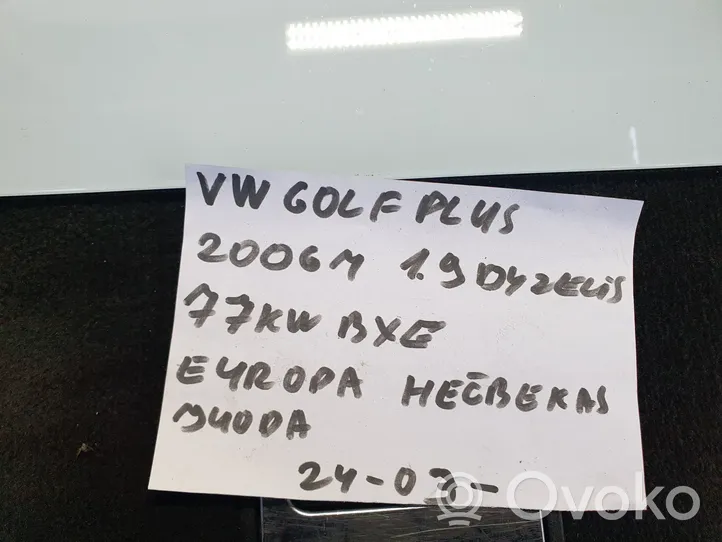 VW GOLF PLUS
2006M 1.9 DYZELIS
77KW BXE
EUROPA HEČBEKAS
JUODA
24-03-
Ovoko